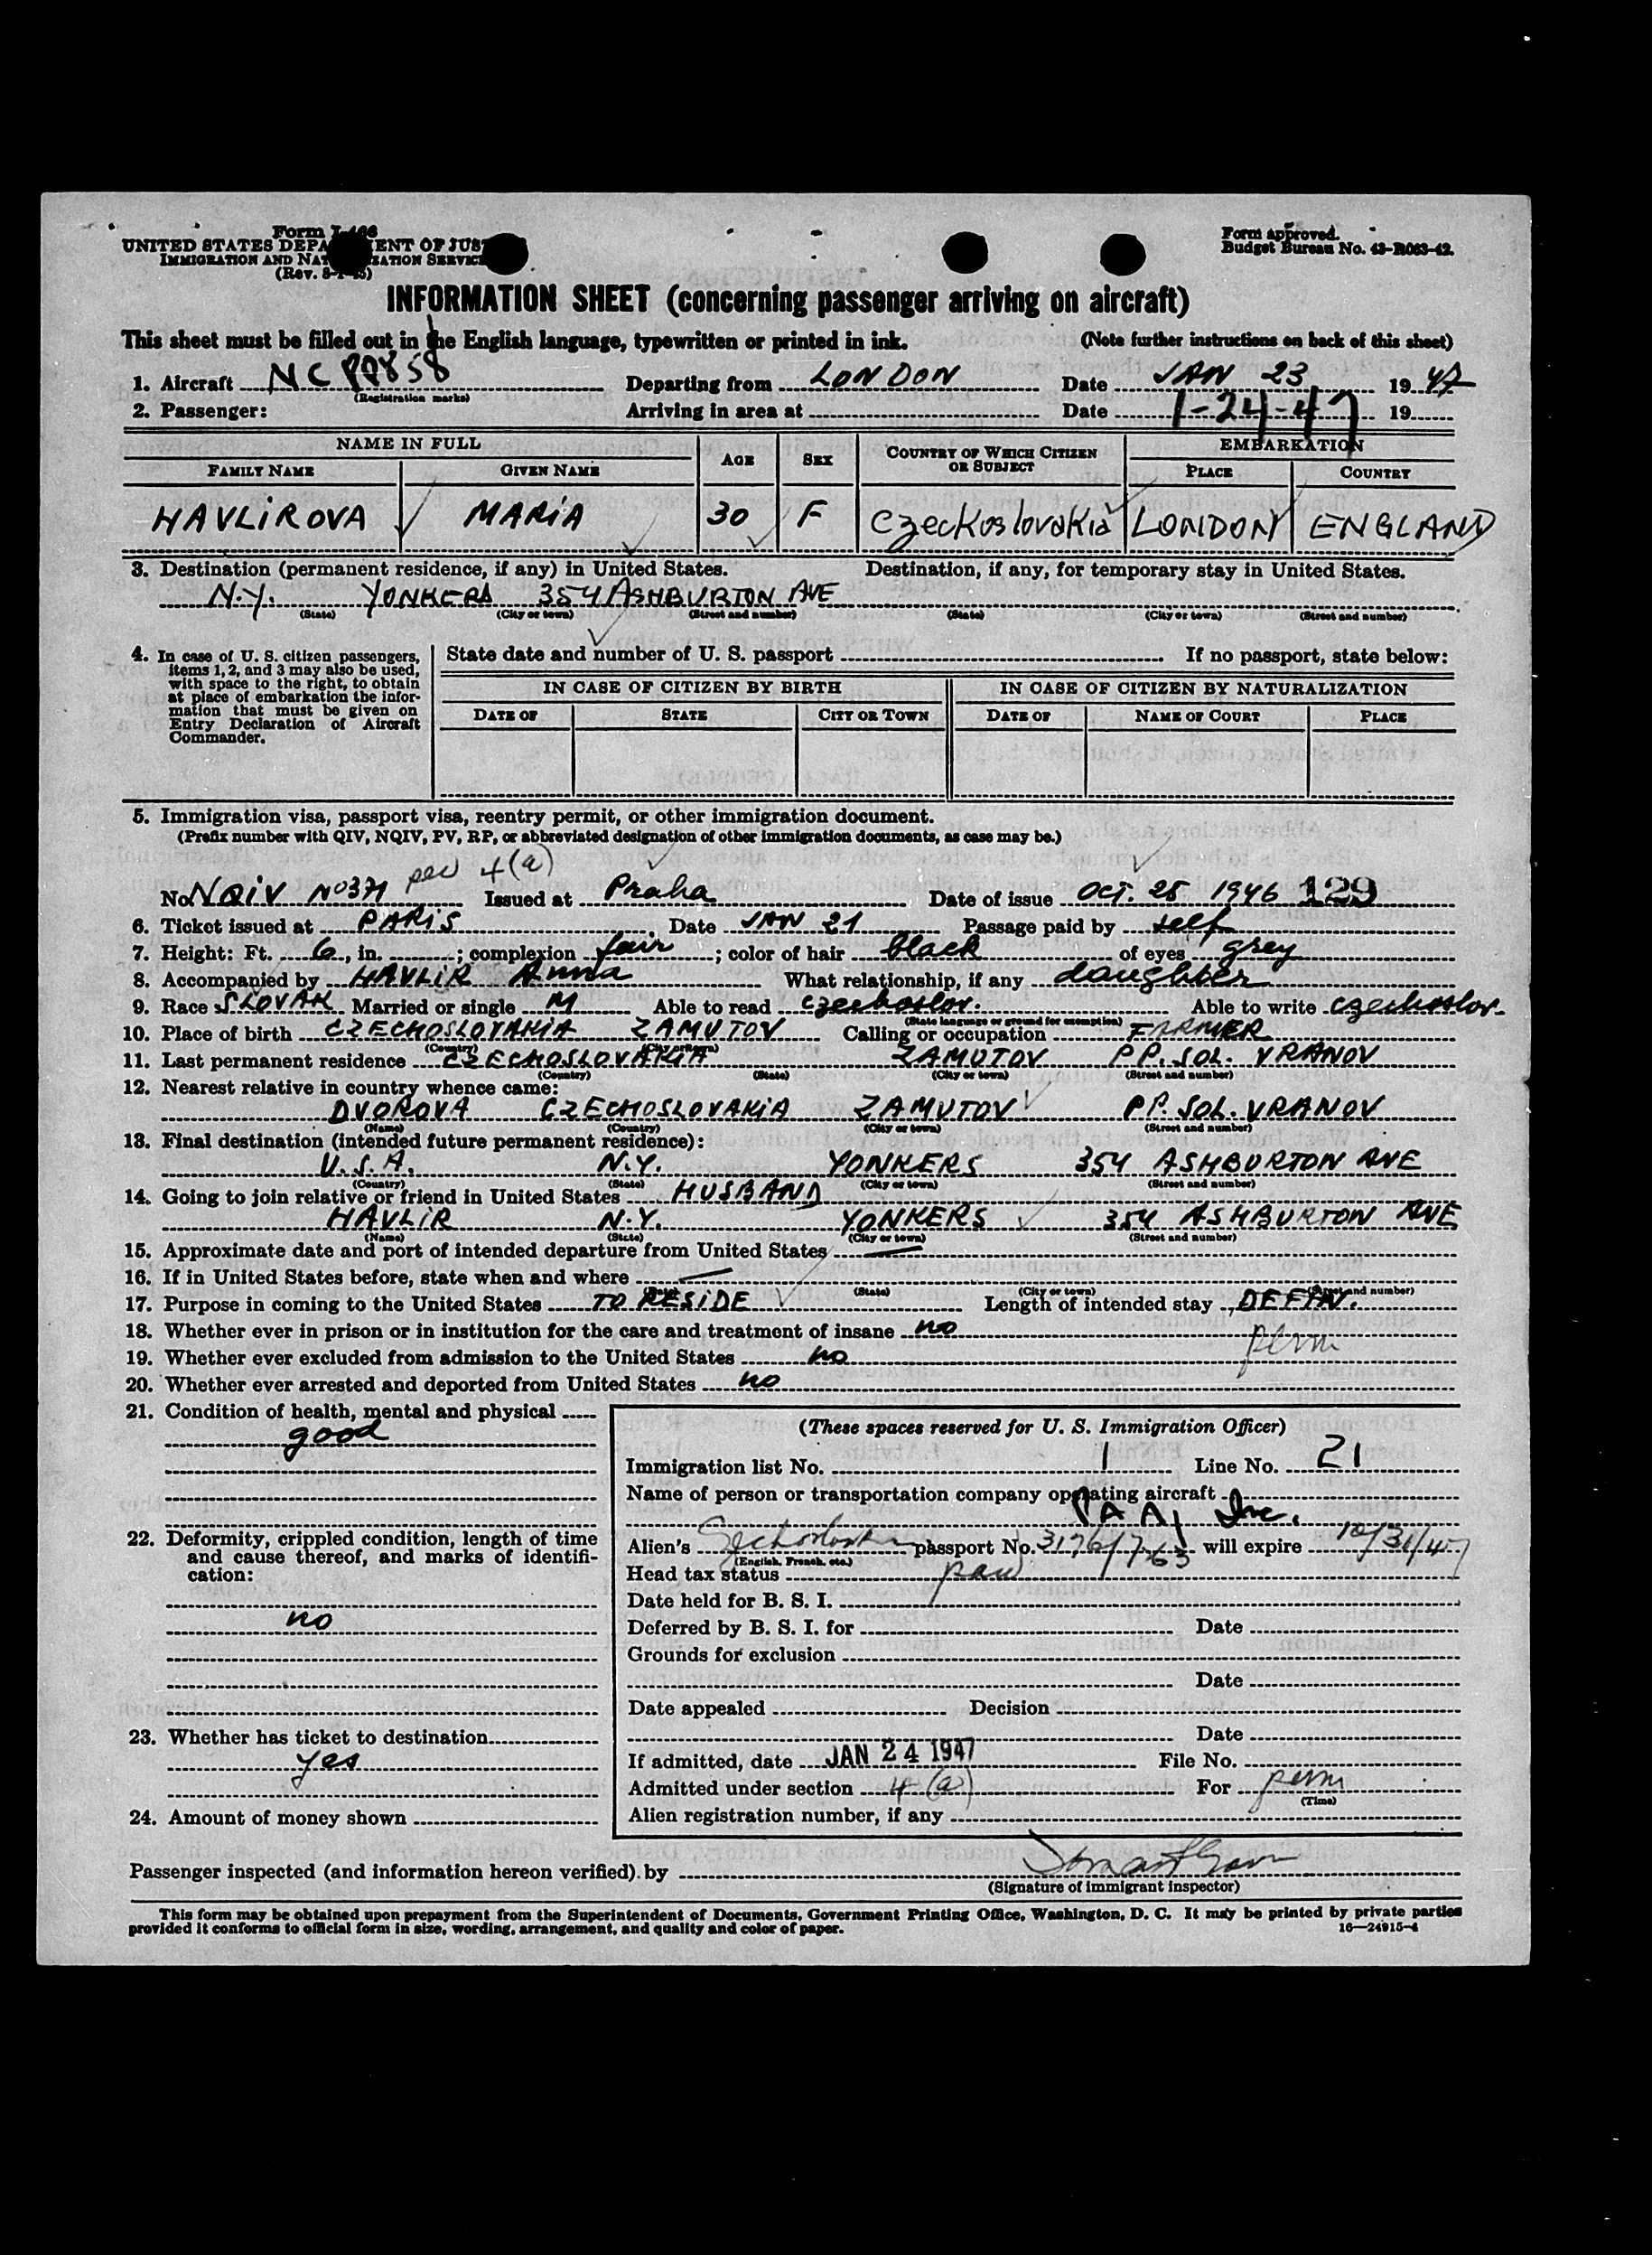 Form I-466
UNITED STATES DEPARTMENT OF JUSTICE
IMMIGRATION AND NATURALIZATION SERVICE
(Rev. 8-1-45)
Form approved.
Budget Bureau No. 43-R063-42.
INFORMATION SHEET (concerning passenger arriving on aircraft)
This sheet must be filled out in the English language, typewritten or printed in ink. (Note further instructions on back of this sheet)
1. Aircraft NC 88858 Departing from LONDON Date JAN 23 1947
(Registration marks)
2. Passenger: Arriving in area at Date 1-24-47 19
NAME IN FULL AGE SEX COUNTRY OF WHICH CITIZEN OR SUBJECT EMBARKATION
FAMILY NAME GIVEN NAME PLACE COUNTRY
HAVLIROVA MARIA 30 F Czeckoslovakia LONDON ENGLAND
3. Destination (permanent residence, if any) in United States. Destination, if any, for temporary stay in United States.
N.Y. YONKERS 354 ASHBURTON AVE
(State) (City or town) (Street and number) (State) (City or town) (Street and number)
4. In case of U. S. citizen passengers, items 1, 2, and 3 may also be used, with space to the right, to obtain at place of embarkation the information that must be given on Entry Declaration of Aircraft Commander.
State date and number of U. S. passport If no passport, state below:
IN CASE OF CITIZEN BY BIRTH IN CASE OF CITIZEN BY NATURALIZATION
DATE OF STATE CITY OR TOWN DATE OF NAME OF COURT PLACE
5. Immigration visa, passport visa, reentry permit, or other immigration document.
(Prefix number with QIV, NQIV, PV, RP, or abbreviated designation of other immigration documents, as case may be.)
4(a)
No. NQIV No 371 Issued at Praha Date of issue OCT. 25 1946 129
6. Ticket issued at PARIS Date JAN 21 Passage paid by self
7. Height: Ft. 6, in. ; complexion fair ; color of hair black of eyes grey
8. Accompanied by HAVLIR Anna What relationship, if any daughter
9. Race SLOVAK Married or single M Able to read czechoslov. Able to write czechoslov.
(State language or ground for exemption)
10. Place of birth CZECHOSLOVAKIA ZAMUTOV Calling or occupation FARMER
(Country) (City or town)
11. Last permanent residence CZECHOSLOVAKIA ZAMUTOV PP. SOL. VRANOV
(Country) (State) (City or town) (Street and number)
12. Nearest relative in country whence came:
DVOROVA CZECHOSLOVAKIA ZAMUTOV PP. SOL. VRANOV
(Name) (Country) (City or town) (Street and number)
13. Final destination (intended future permanent residence):
U.S.A. N.Y. YONKERS 354 ASHBURTON AVE
(Country) (State) (City or town) (Street and number)
14. Going to join relative or friend in United States HUSBAND
HAVLIR N.Y. YONKERS 354 ASHBURTON AVE
(Name) (State) (City or town) (Street and number)
15. Approximate date and port of intended departure from United States —
16. If in United States before, state when and where —
(Date) (State) (City or town) (Street and number)
17. Purpose in coming to the United States TO RESIDE Length of intended stay DEFIN.
18. Whether ever in prison or in institution for the care and treatment of insane no
perm
19. Whether ever excluded from admission to the United States no
20. Whether ever arrested and deported from United States no
21. Condition of health, mental and physical
good
22. Deformity, crippled condition, length of time and cause thereof, and marks of identification:
no
23. Whether has ticket to destination
yes
24. Amount of money shown
(These spaces reserved for U. S. Immigration Officer)
Immigration list No. 1 Line No. 21
Name of person or transportation company operating aircraft
PAA, Inc.
Alien's passport No. 3176/7763 will expire 10/31/47
(English, French, etc.)
Head tax status
Date held for B. S. I.
Deferred by B. S. I. for Date
Grounds for exclusion
Date
Date appealed Decision
Date
If admitted, date JAN 24 1947 File No.
Admitted under section 4(a) For perm
(Time)
Alien registration number, if any
Passenger inspected (and information hereon verified) by
(Signature of immigrant inspector)
This form may be obtained upon prepayment from the Superintendent of Documents, Government Printing Office, Washington, D. C. It may be printed by private parties
provided it conforms to official form in size, wording, arrangement, and quality and color of paper. 16—24915-4